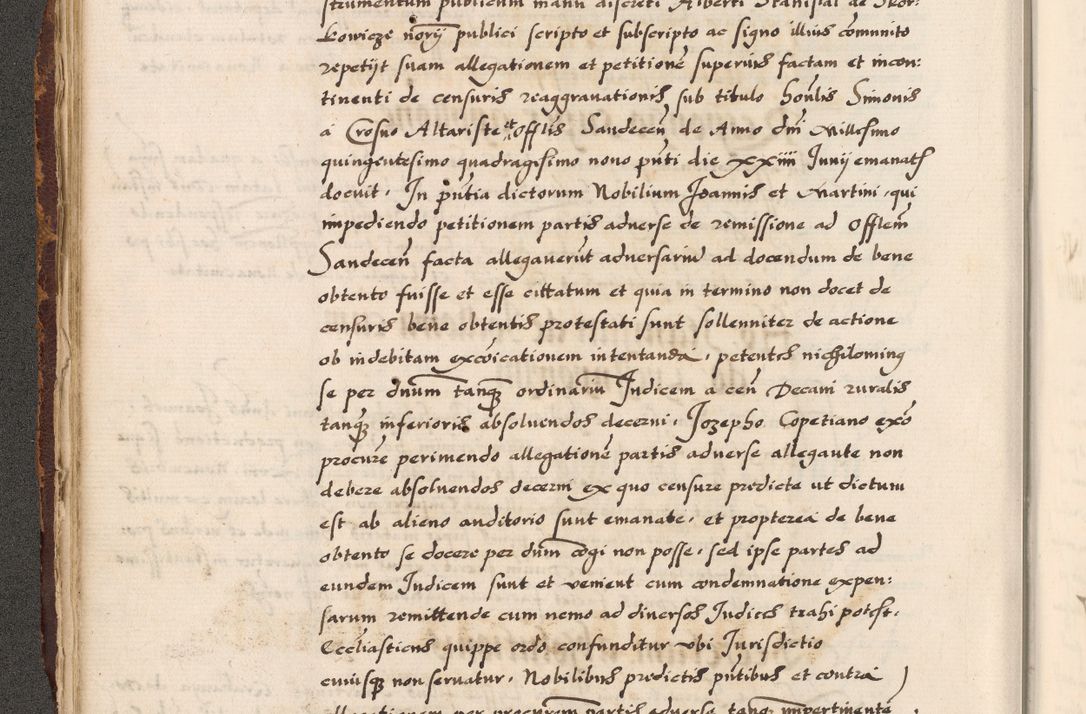 strumentum publicum manu discreti Alberti Stanislai de Skor:
kowicze nōrij publici scripto et subscripto ac signo illius cōmunito
repetijt suam allegationem et petitionē superius factam et incon:
tinenti de censuris reaggrauationis sub titulo Honlis Simonis
a Crosno Altariste et Offlis Sandecen̄ de Anno dnī Millesimo
quingentesimo quadragesimo nono pn̄ti die xxiiii Junij emanatis
docuit, In pn̄tia dictorum Nobilium Joannis et Martini, qui
impediendo petitionem partis aduerse de remissione ad Offlem̄
Sandecen̄ facta allegauerūt aduersariū ad docendum de bene
obtento fuisse et esse cittatum et quia in termino non docet de
censuris bene obtentis protestati sunt sollenniter de actione
ob indebitam excōicationem intentanda, petentes nichilominus
se per dnūm tanq̄ ordinariū Judicem a cen̄ Decani ruralis
tanq̄ inferioris absoluendos decerni, Jozepho Copetiano exō
procure perimendo allegationē partis aduerse allegante non
debere absoluendos decerni ex quo censure predicte ut dictum
est ab alieno auditorio sunt emanate, et propterea de bene
obtento se docere per dnūm cogi non posse, sed ipse partes ad
eundem Judicem sunt et venient cum condemnatione expen:
sarum remittende cum nemo ad diuersos Judices trahi potest,
Eccliasticus quippe ordo confunditur vbi Jurisdictio
cuiusq̄ non seruatur, Nobilibus predictis pn̄tibus et contra
allegationem per procurem partis aduerse tanq̄ impertinente